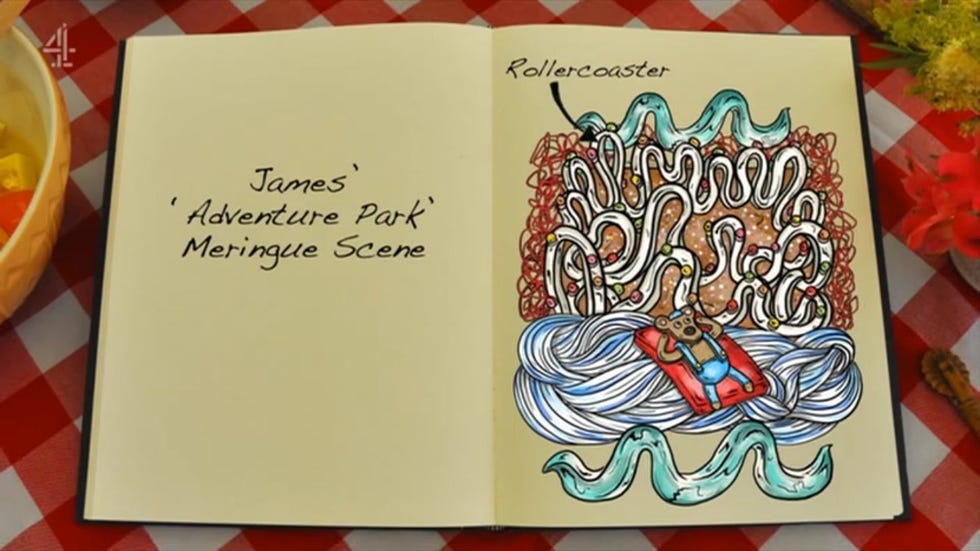 4
James'
'Adventure Park'
Meringue Scene
Rollercoaster